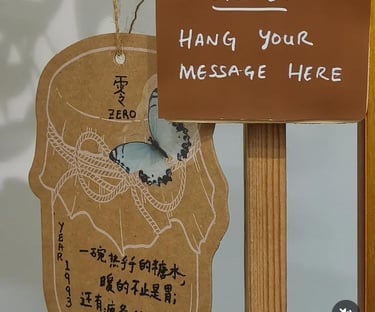 HANG YOUR
MESSAGE HERE
零
ZERO
YEAR 1993
一碗热乎乎的糖水，
暖的不止是胃；
还有